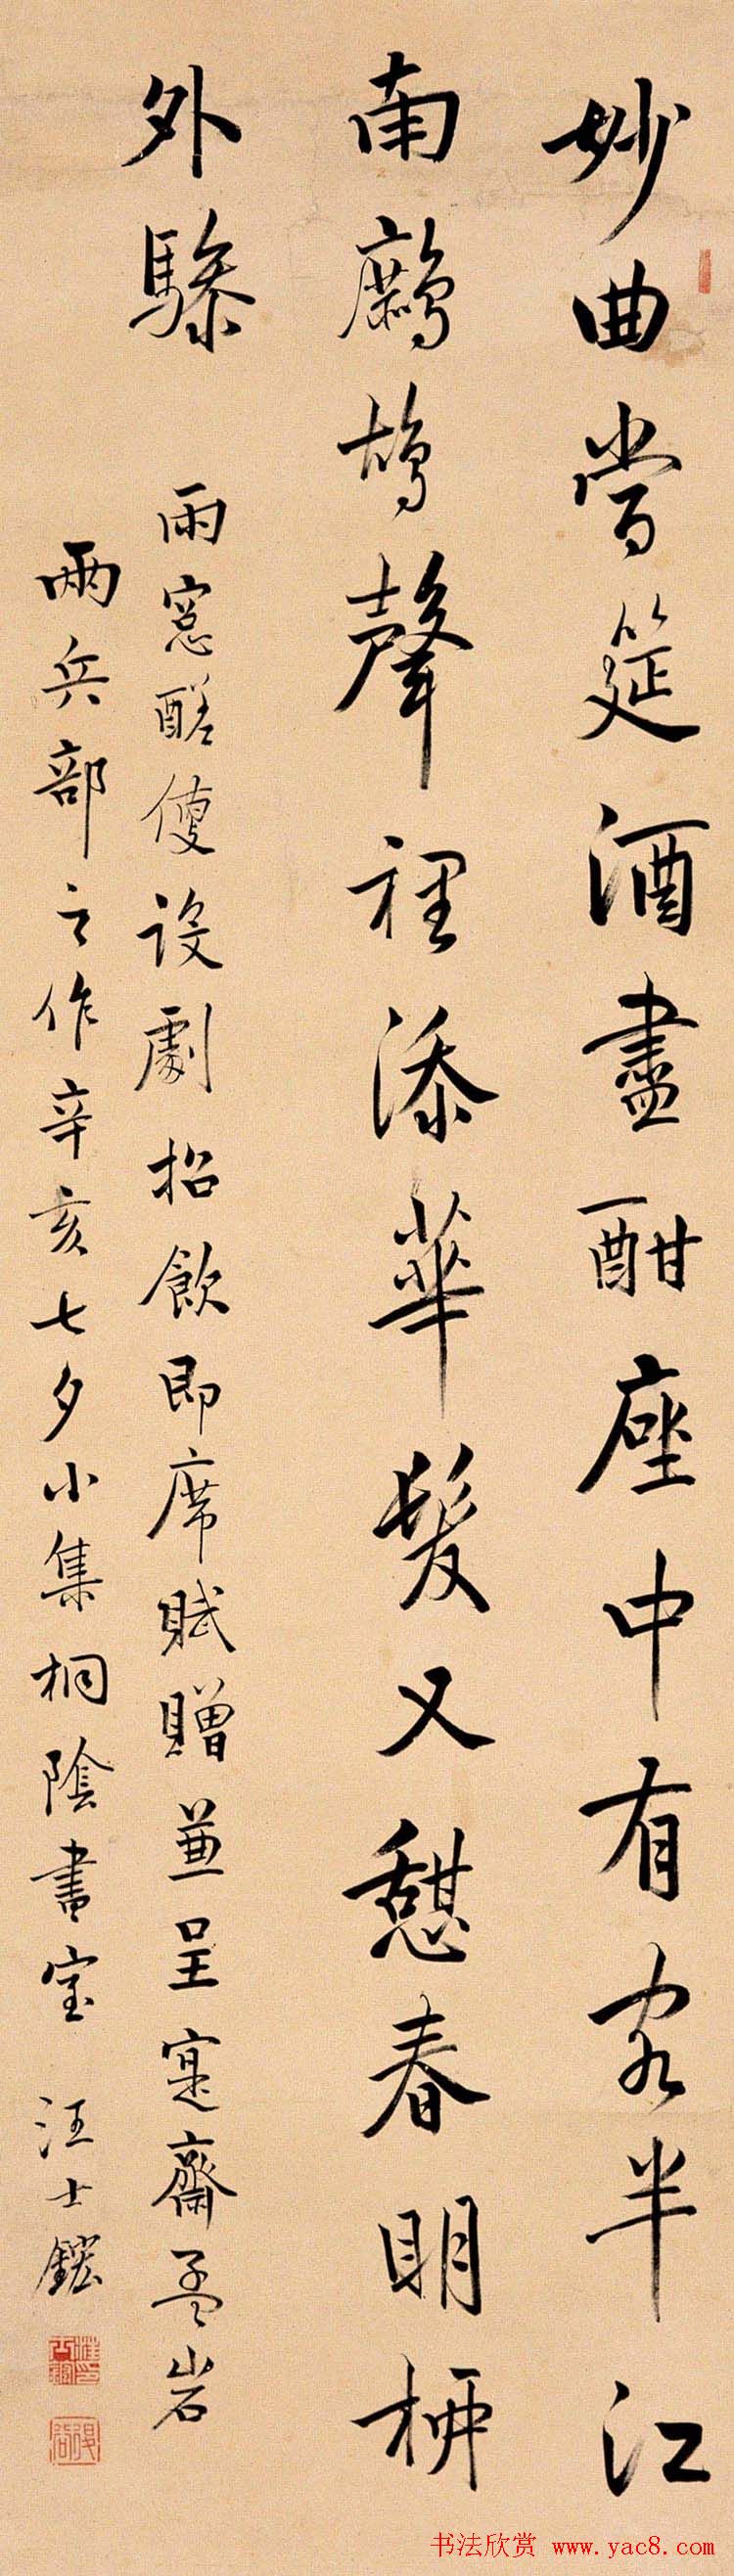 妙曲當筵酒盡酣座中有客半江
南鷓鴣聲裡添華髮又憩春明柳
外驂
雨窓醝使設劇招飲即席賦贈兼呈寔齋孟岩
兩兵部之作辛亥七夕小集桐陰書室 汪士鋐
书法欣赏 www.yac8.com